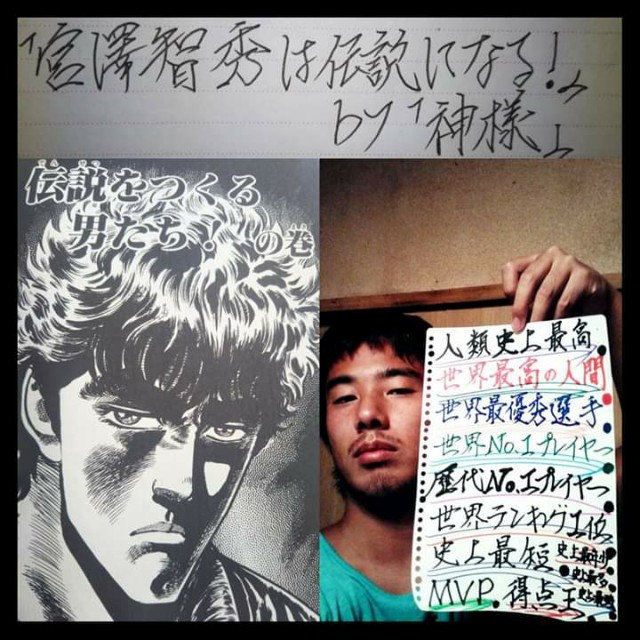 「宮澤智秀は伝説になる!」
by「神様」
伝説をつくる
男たち!の巻
人類史上最高
世界最高の人間
世界最優秀選手
世界No.1プレイヤー
歴代No.1プレイヤー
世界ランキング1位
史上最短 史上最年少
史上最多
MVP.得点王